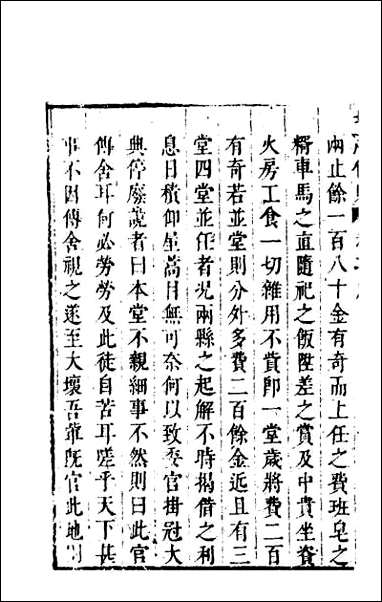 兩止餘一百八十金有奇而上任之費班皂之
糈車馬之直隨祀之飯陞差之賞及中貴坐資
火房工食一切雜用不貲即一堂歲將費二百
有奇若並堂則分外多費二百餘金近且有三
堂四堂並任者況兩縣之起解不時揭借之利
息日積仰屋蒿目無可奈何以致委官掛冠大
典停廢說者曰本堂不親細事不然則曰此官
傳舍耳何必勞勞及此徒自苦耳嗟乎天下甚
事不因傳舍視之遂至大壞吾輩既官此地則